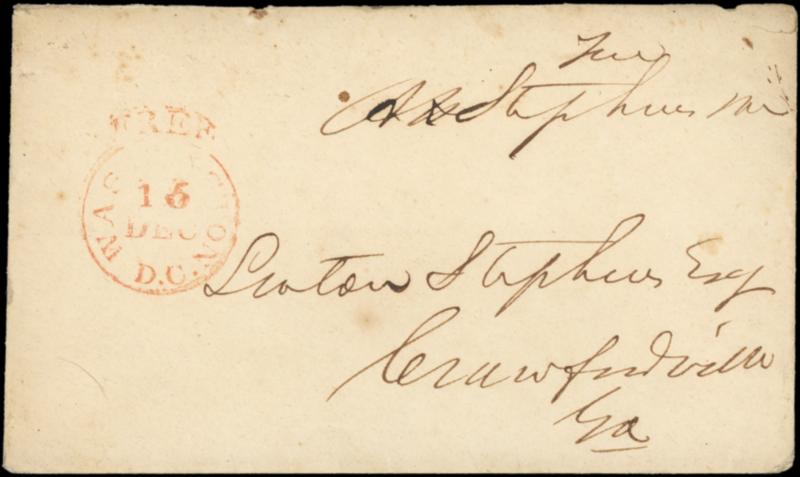 Free
A H Stephens MC
FREE
WASHINGTON
16
DEC
D.C.
Linton Stephens Esq
Crawfordville
Ga